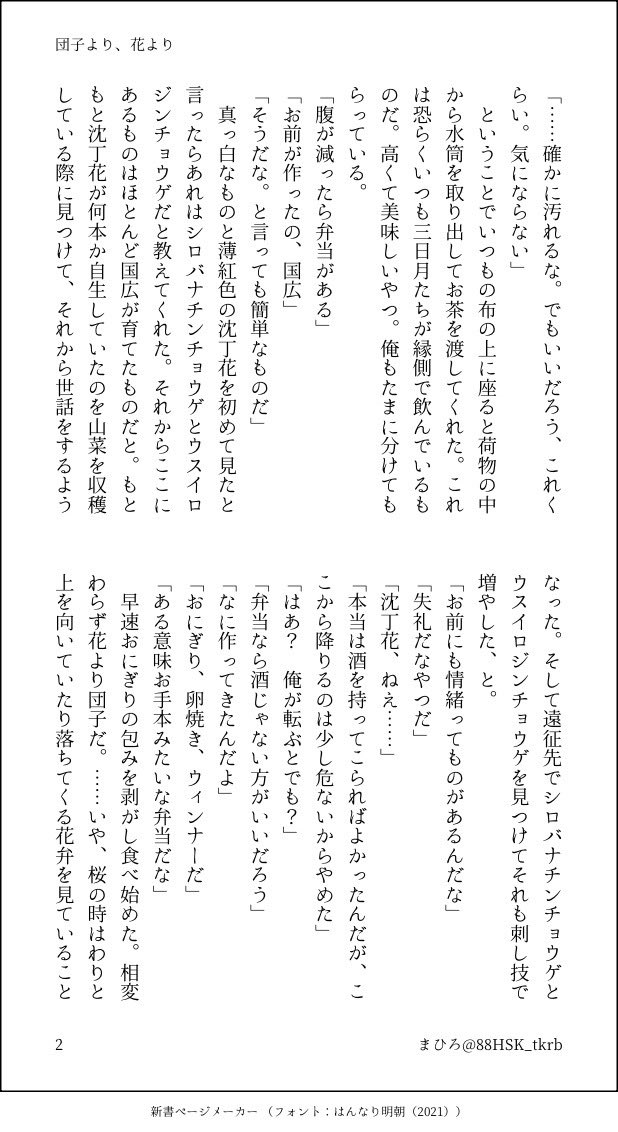 団子より、花より
「……確かに汚れるな。でもいいだろう、これく
らい。気にならない」
　ということでいつもの布の上に座ると荷物の中
から水筒を取り出してお茶を渡してくれた。これ
は恐らくいつも三日月たちが縁側で飲んでいるも
のだ。高くて美味しいやつ。俺もたまに分けても
らっている。
「腹が減ったら弁当がある」
「お前が作ったの、国広」
「そうだな。と言っても簡単なものだ」
　真っ白なものと薄紅色の沈丁花を初めて見たと
言ったらあれはシロバナチンチョウゲとウスイロ
ジンチョウゲだと教えてくれた。それからここに
あるものはほとんど国広が育てたものだと。もと
もと沈丁花が何本か自生していたのを山菜を収穫
している際に見つけて、それから世話をするよう
なった。そして遠征先でシロバナチンチョウゲと
ウスイロジンチョウゲを見つけてそれも刺し技で
増やした、と。
「お前にも情緒ってものがあるんだな」
「失礼だなやつだ」
「沈丁花、ねえ……」
「本当は酒を持ってこられればよかったんだが、こ
こから降りるのは少し危ないからやめた」
「はあ？　俺が転ぶとでも？」
「弁当なら酒じゃない方がいいだろう」
「なに作ってきたんだよ」
「おにぎり、卵焼き、ウィンナーだ」
「ある意味お手本みたいな弁当だな」
　早速おにぎりの包みを剥がし食べ始めた。相変
わらず花より団子だ。……いや、桜の時はわりと
上を向いていたり落ちてくる花弁を見ていること
2
まひろ@88HSK_tkrb
新書ページメーカー （フォント：はんなり明朝（2021））